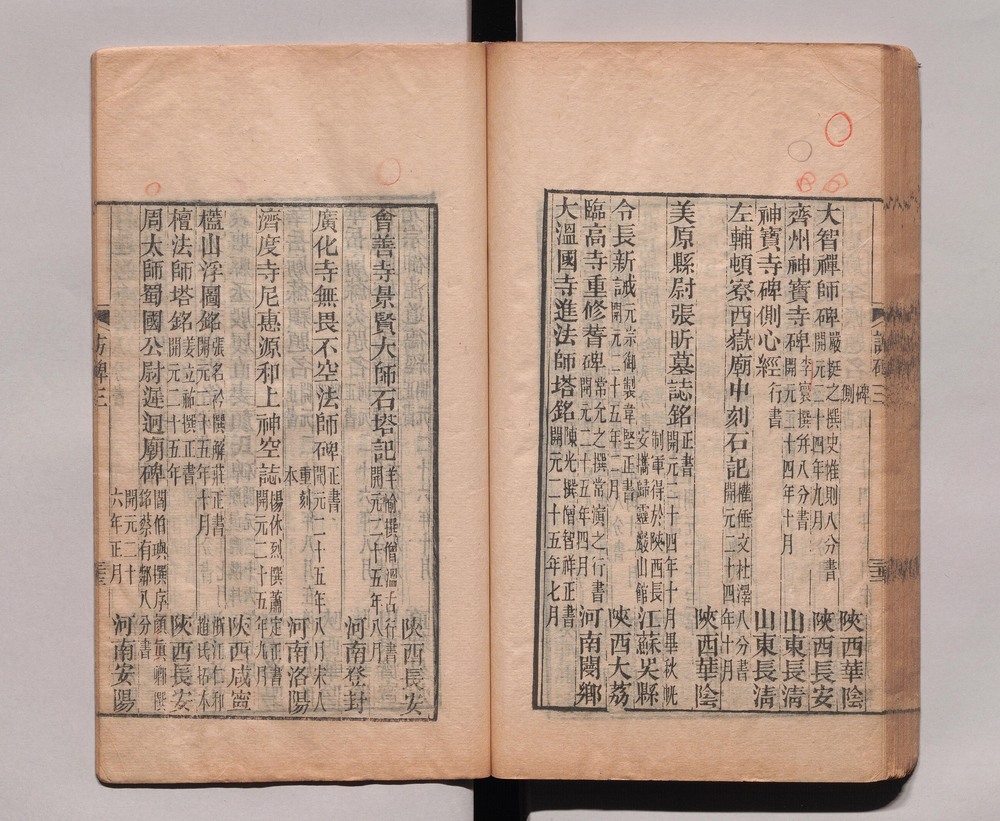 碑側
陝西華陰
大智禪師碑 嚴挺之撰史惟則八分書 開元二十四年九月 陝西長安
齊州神寶寺碑 李寰撰并八分書 開元二十四年十月 山東長清
神寶寺碑側心經 行書 山東長清
左輔頓寮西嶽廟中刻石記 權倕文杜澤八分書 開元二十四年十月
陝西華陰
美原縣尉張昕墓誌銘 正書 開元二十四年十月畢秋帆
制軍得於陝西長安攜歸靈巖山館 江蘇吳縣
令長新誡 元宗御製韋堅正書 開元二十五年二月 陝西大荔
臨高寺重修舊碑 常允之撰常演之行書 開元二十五年四月 河南閿鄉
大溫國寺進法師塔銘 陳光撰僧智祥正書 開元二十五年七月
陝西長安
會善寺景賢大師石塔記 羊愉撰僧溫古行書 開元二十五年八月
河南登封
廣化寺無畏不空法師碑 正書 開元二十五年八月宋人
重刻本 河南洛陽
濟度寺尼惠源和上神空誌 楊休烈撰蕭定正書 開元二十五年九月
陝西咸寧
張名衿撰解莊正書 開元二十五年十月 浙江仁和趙氏拓本
檀法師塔銘 姜立祐撰正書 開元二十五年 陝西長安
周太師蜀國公尉遲迥廟碑 閻伯璵撰序顏真卿撰銘蔡有鄰八分書 開元二十六年正月 河南安陽
訪碑三